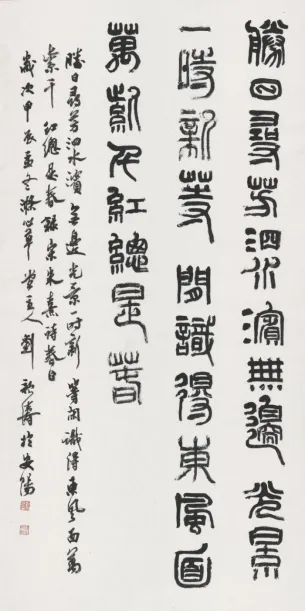 勝日尋芳泗水濱無邊光景
一時新等閒識得東風面
萬紫千紅總是春
勝日尋芳泗水濱無邊光景一時新等閒識得東風面萬
紫千紅總是春錄宋朱熹詩春日
歲次甲辰孟冬草堂主人劉濤於安陽